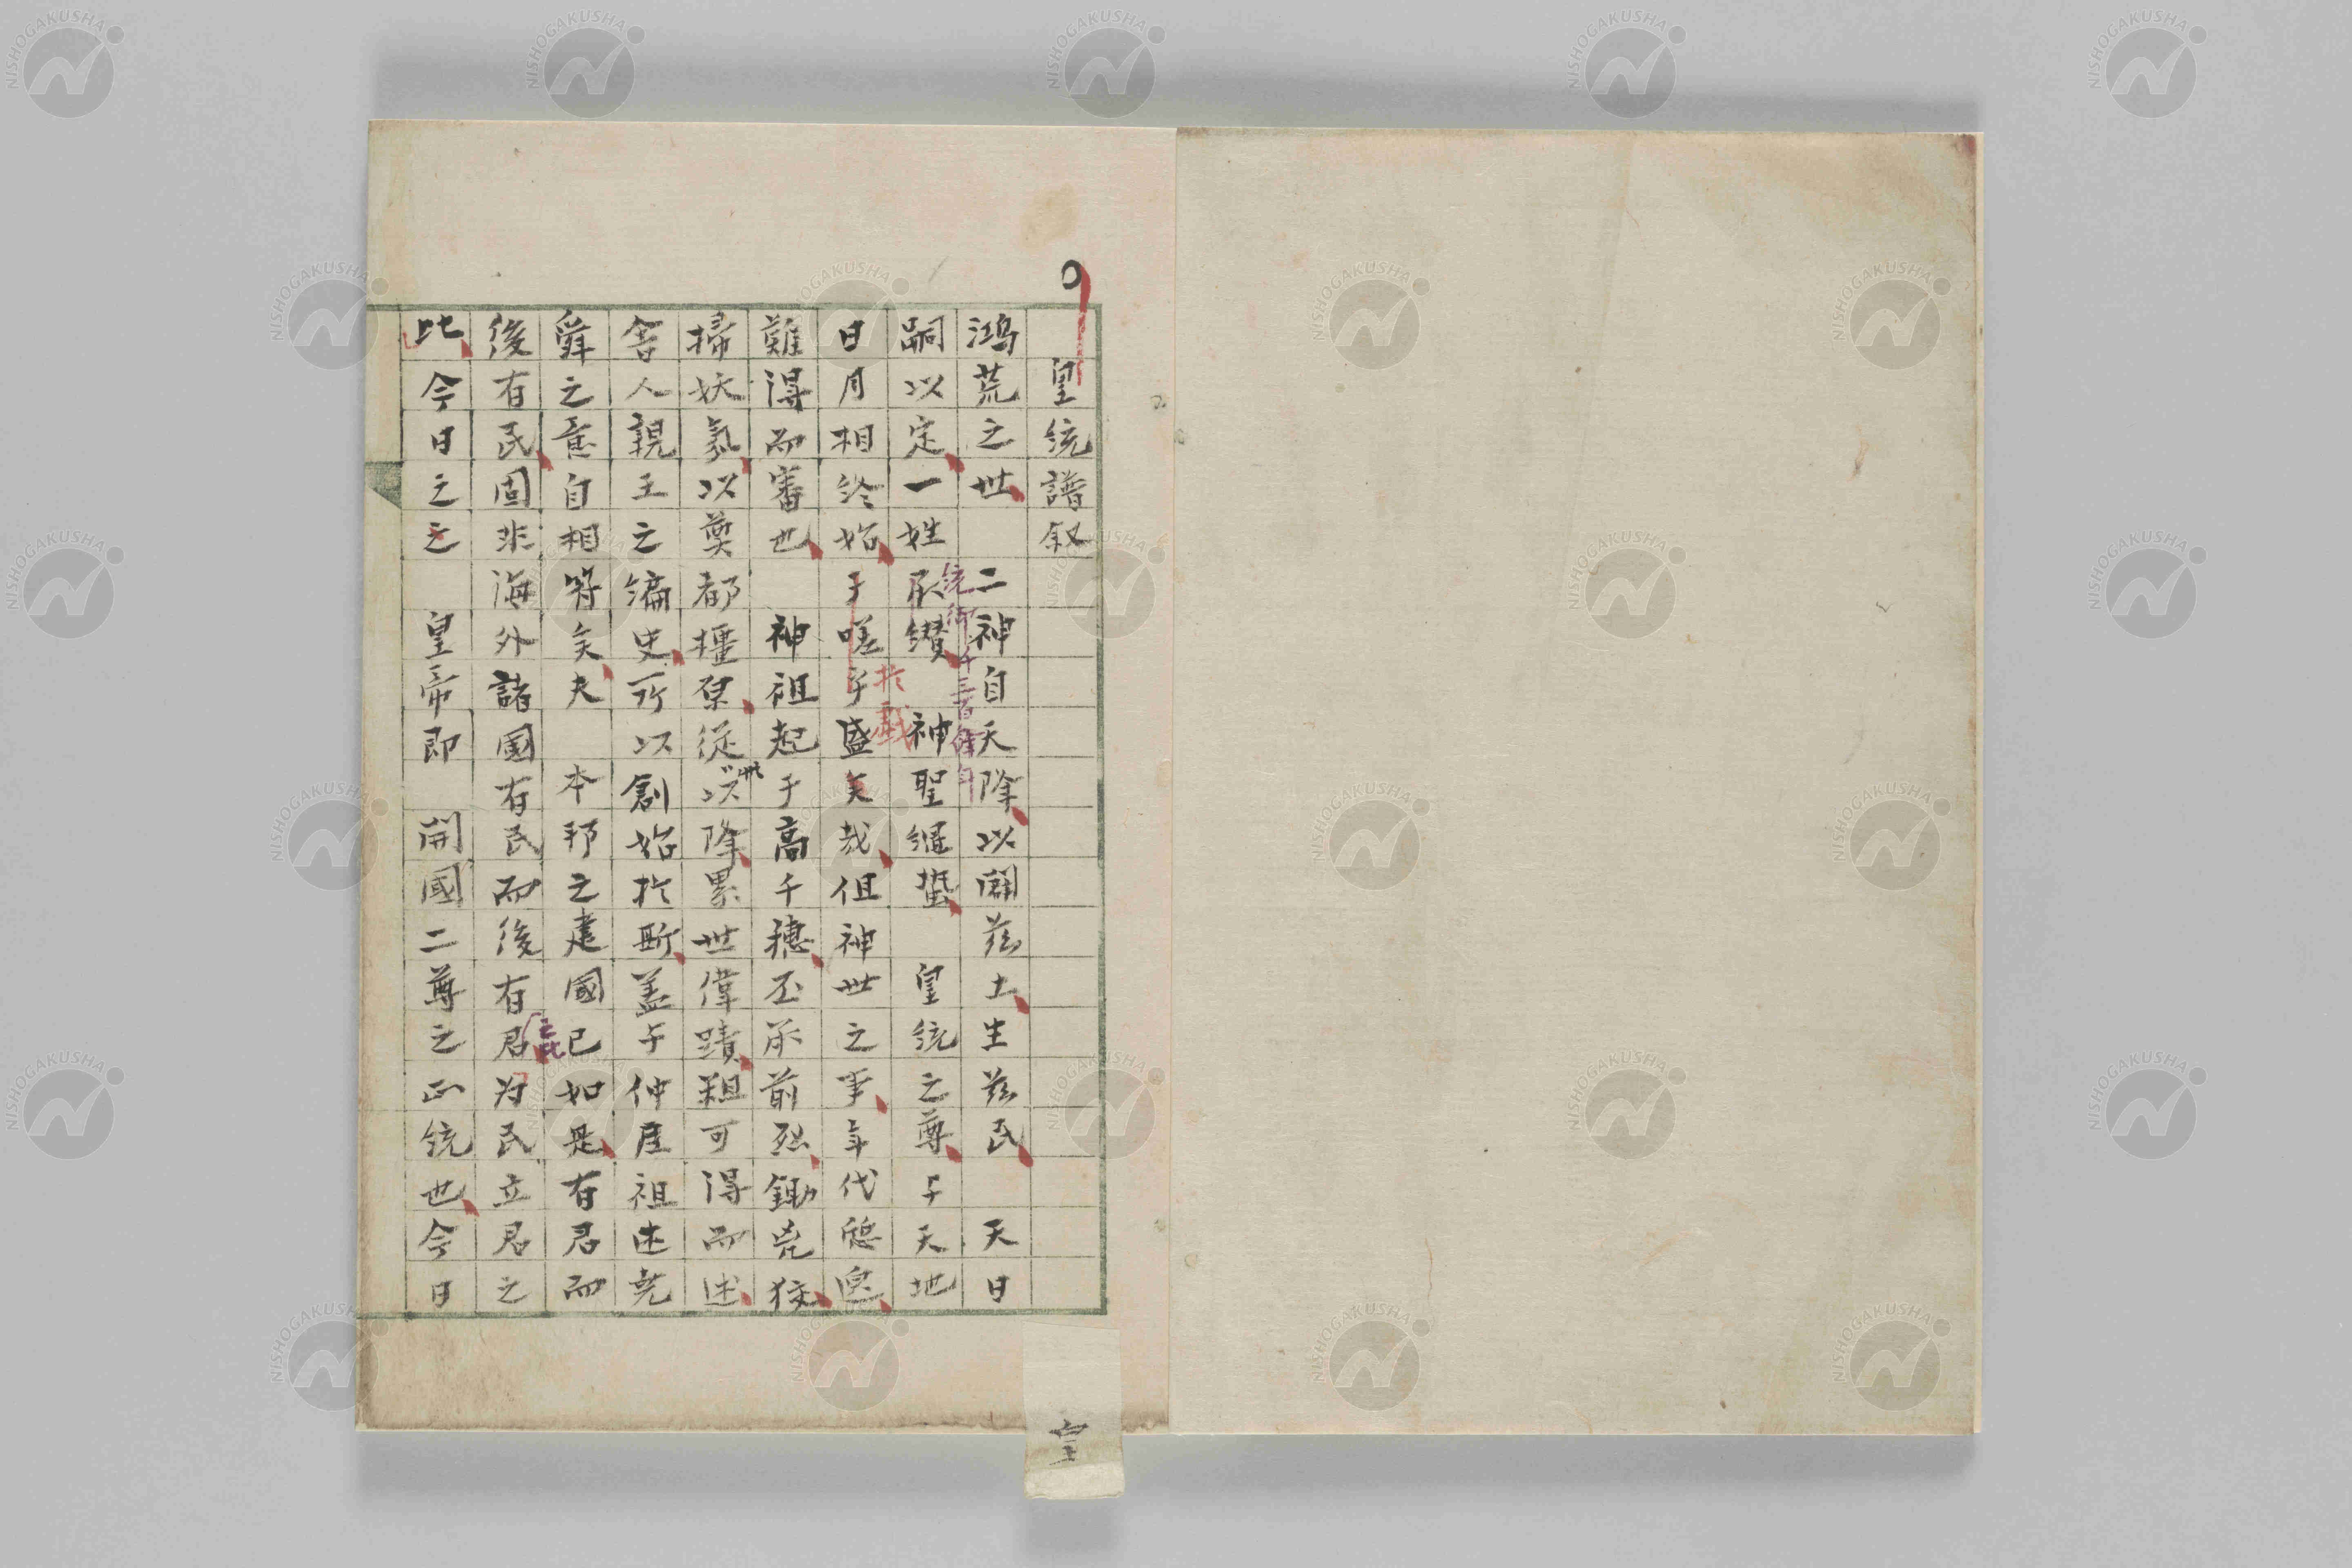 皇統譜叙
鴻荒之世 二神自天降以闢茲土生茲民 天日
嗣以定一姓承纉 神聖繩蟄 皇統之尊与天地
統御
千三百餘年
日月相終始于嗟乎盛矣哉但神世之事年代悠邈
於戲
難得而審也 神祖起于高千穗丕承前烈鋤兇狡
掃妖氛以奠都橿原從以降累世偉蹟粗可得而述
此
舍人親王之編史所以創始於斯蓋与仲尼祖述堯
舜之意自相符矣夫 本邦之建國已如是有君而
後有民固非海外諸國有民而後有君為民立君之
之比
比今日之 皇帝即 開國二尊之正統也今日
皇
NISHOGAKUSHA